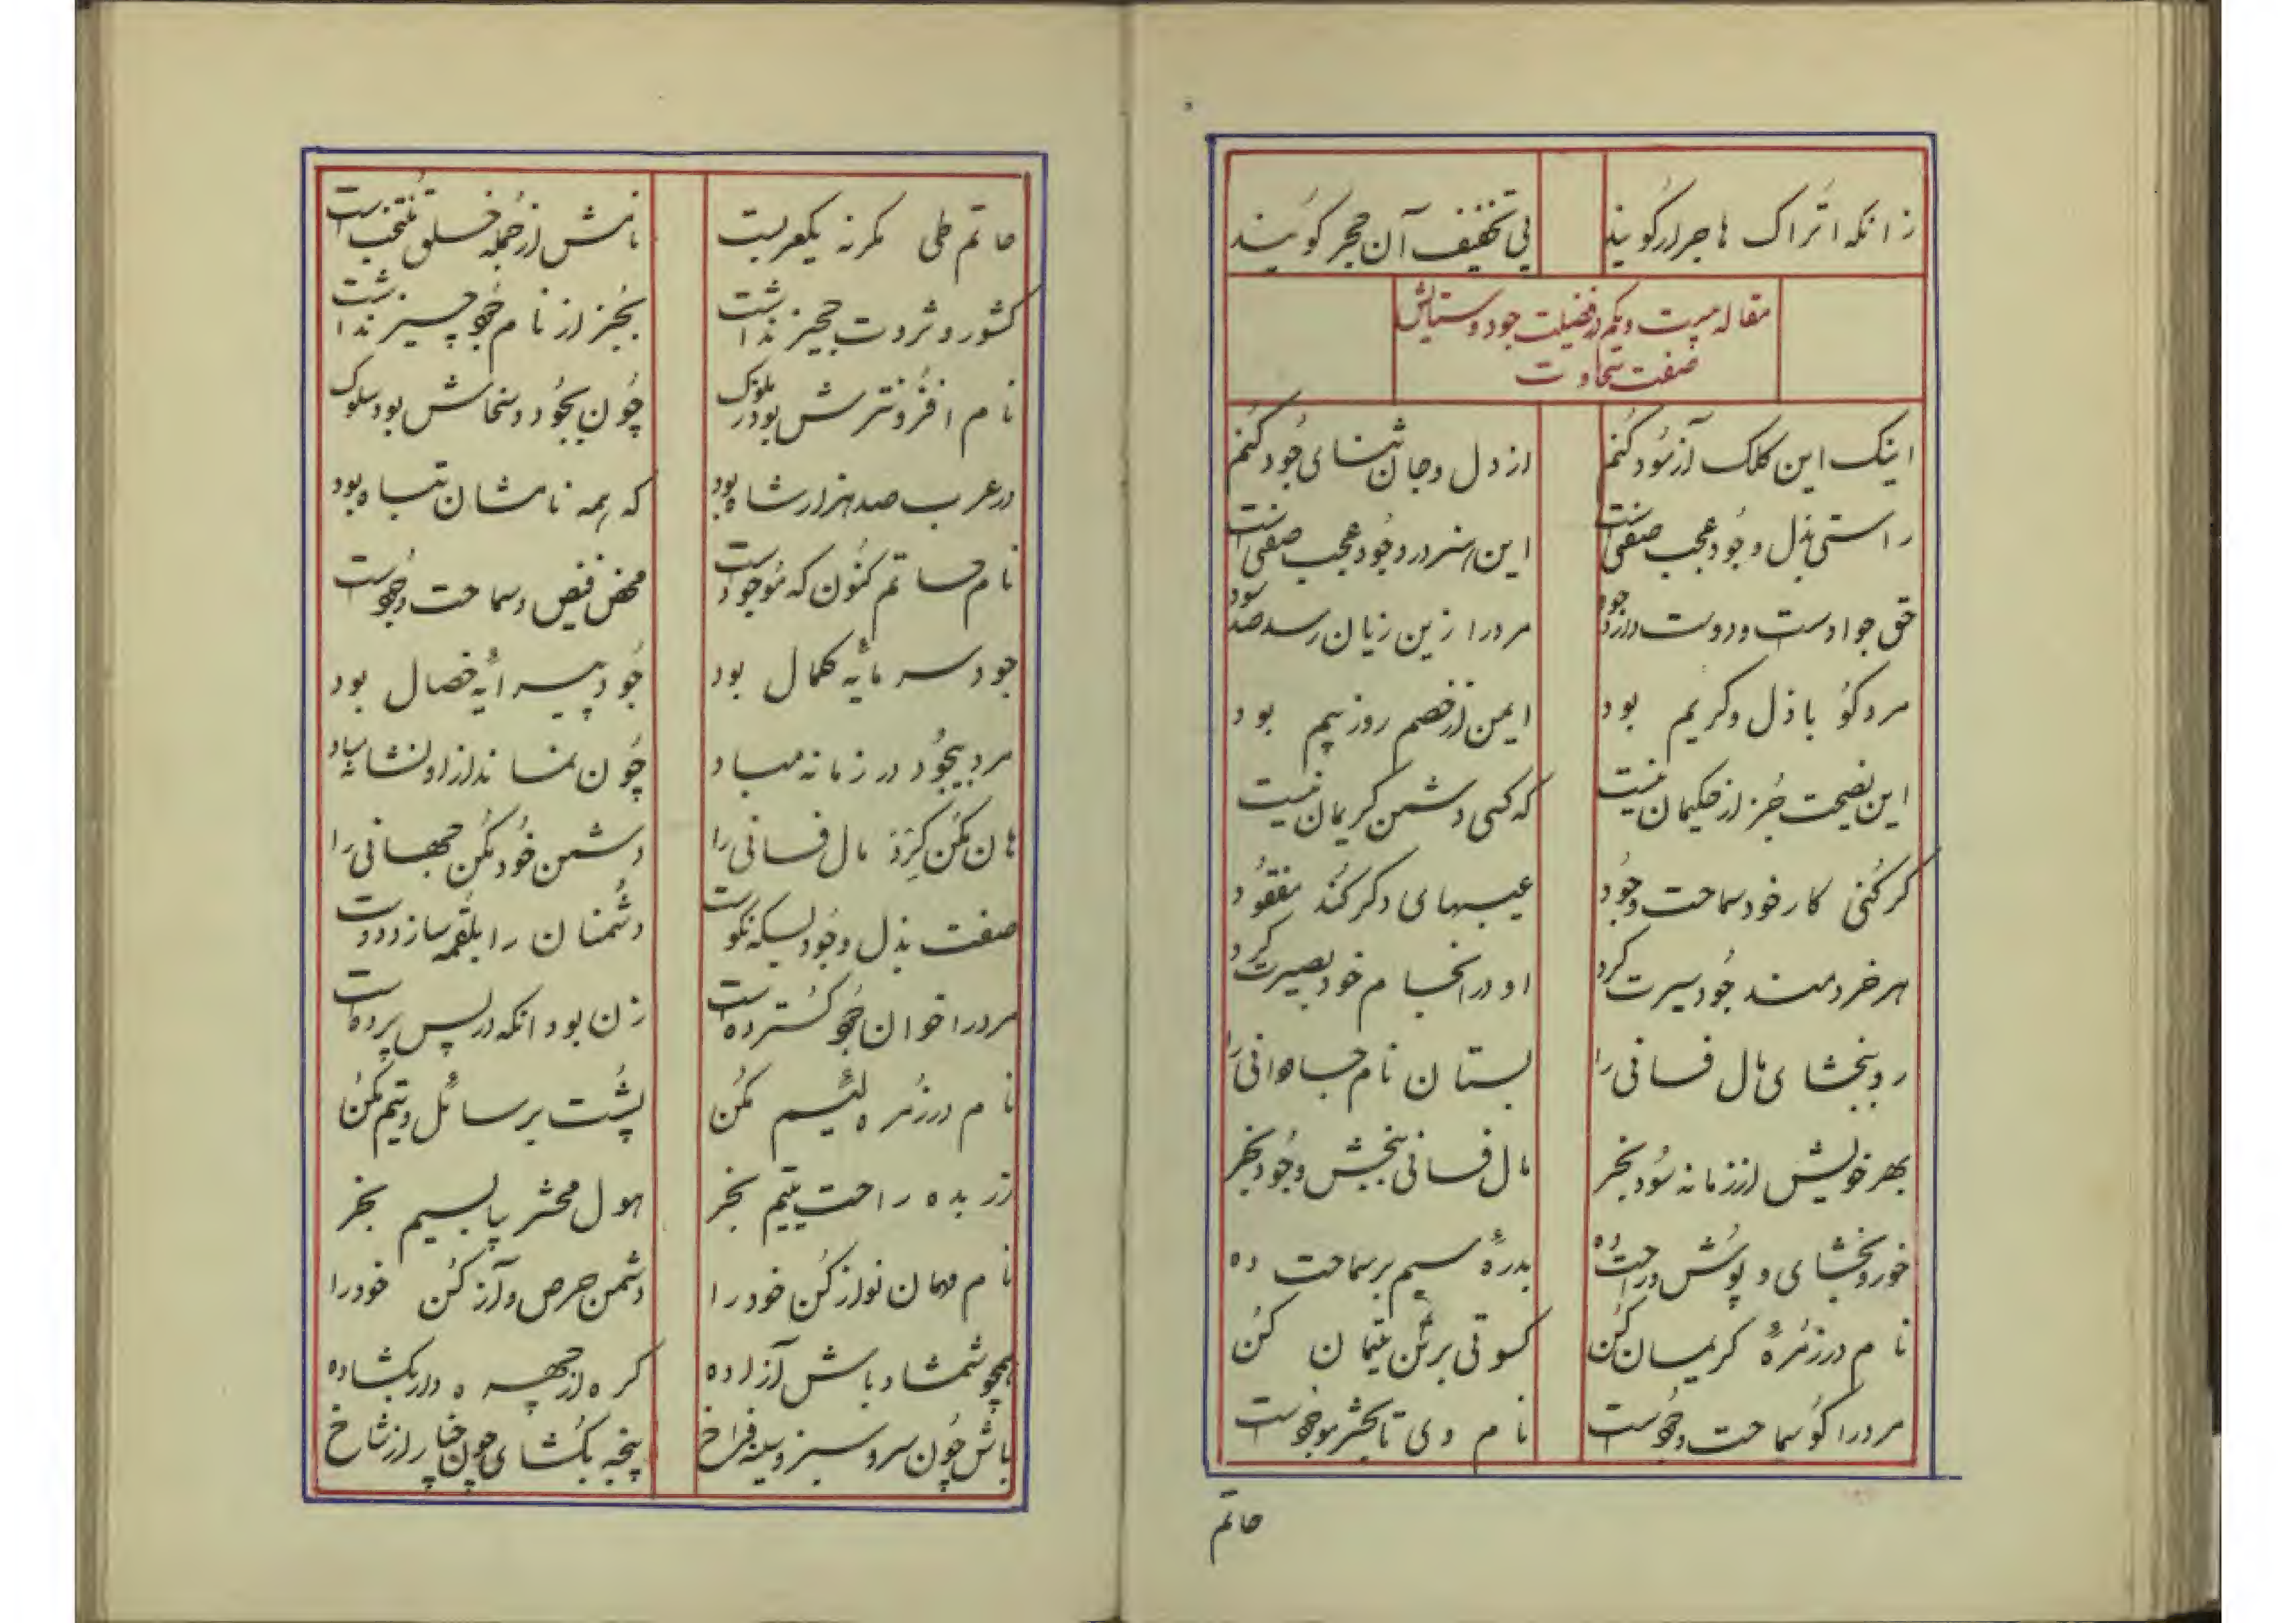 زانکه اتراک هاجرار گویند بی تخفیف آن حجر گویند
مقاله بیست و یکم در فضیلت جود و ستایش
صفت سخاوت
اینک این کلک آزسود کنم از دل و جان ثنای جود کنم
راستی بذل و جود عجب صفتی است این هنر در وجود عجب صفتی است
حق جوادست و دوست دارد جود مرد را زین زیان رسد صد سود
مرد کو باذل و کریم بود ایمن از خصم روز بیم بود
این نصیحت جز از حکیمان نیست که کسی دشمن کریمان نیست
گر کنی کار خود سماحت وجود عیبهای دگر کند مفقود
هر خردمند جود سیرت کرد او در انجام خود بصیرت کرد
رو ببخشای مال فانی را بستان نام جاودانی را
بهر خویش از زمانه سود بخر مال فانی ببخش وجود بخر
خور و بخشای و پوش و راحت ده بدرهٔ سیم بر سماحت ده
نام در زمرهٔ کریمان کن کسوتی بر تن یتیمان کن
مرد را گو سماحت وجودست نام وی تا بحشر موجودست
حاتم
حاتم طی مگر نه یکعربست نامش از جمله خلق منتخب است
کشور و ثروت حجیز نداشت بجز از نام جود چیز نداشت
نام افزونترش بود ز ملوک چون بجود و سخاش بود سلوک
در عرب صد هزار شاه بود که همه نامشان تباه بود
نام حاتم کنون که موجودست محض فیض و سماحت وجودست
جود سرمایه کمال بود جود پیرایه خصال بود
مرد بیجود در زمانه مباد چون نماند از او نشانه مباد
هان مکن کرد مال فانی را دشمن خود مکن جهانی را
صفت بذل وجود بسکه نکوست دشمنان را بلقمه سازد دوست
مرد را خوان جود گسترده است زن بود آنکه در پس پرده است
نام در زمره لئیم مکن پشت بر سائل و یتیم مکن
زر بده راحت یتیم بخر هول محشر بیا بسیم بخر
نام مهمان نواز کن خود را دشمن حرص و آز کن خود را
همچو شمشاد باش آزاده گره از چهره دار بگشاده
باش چون سرو سبز و سینه فراخ پنجه بگشای چون چنار از شاخ